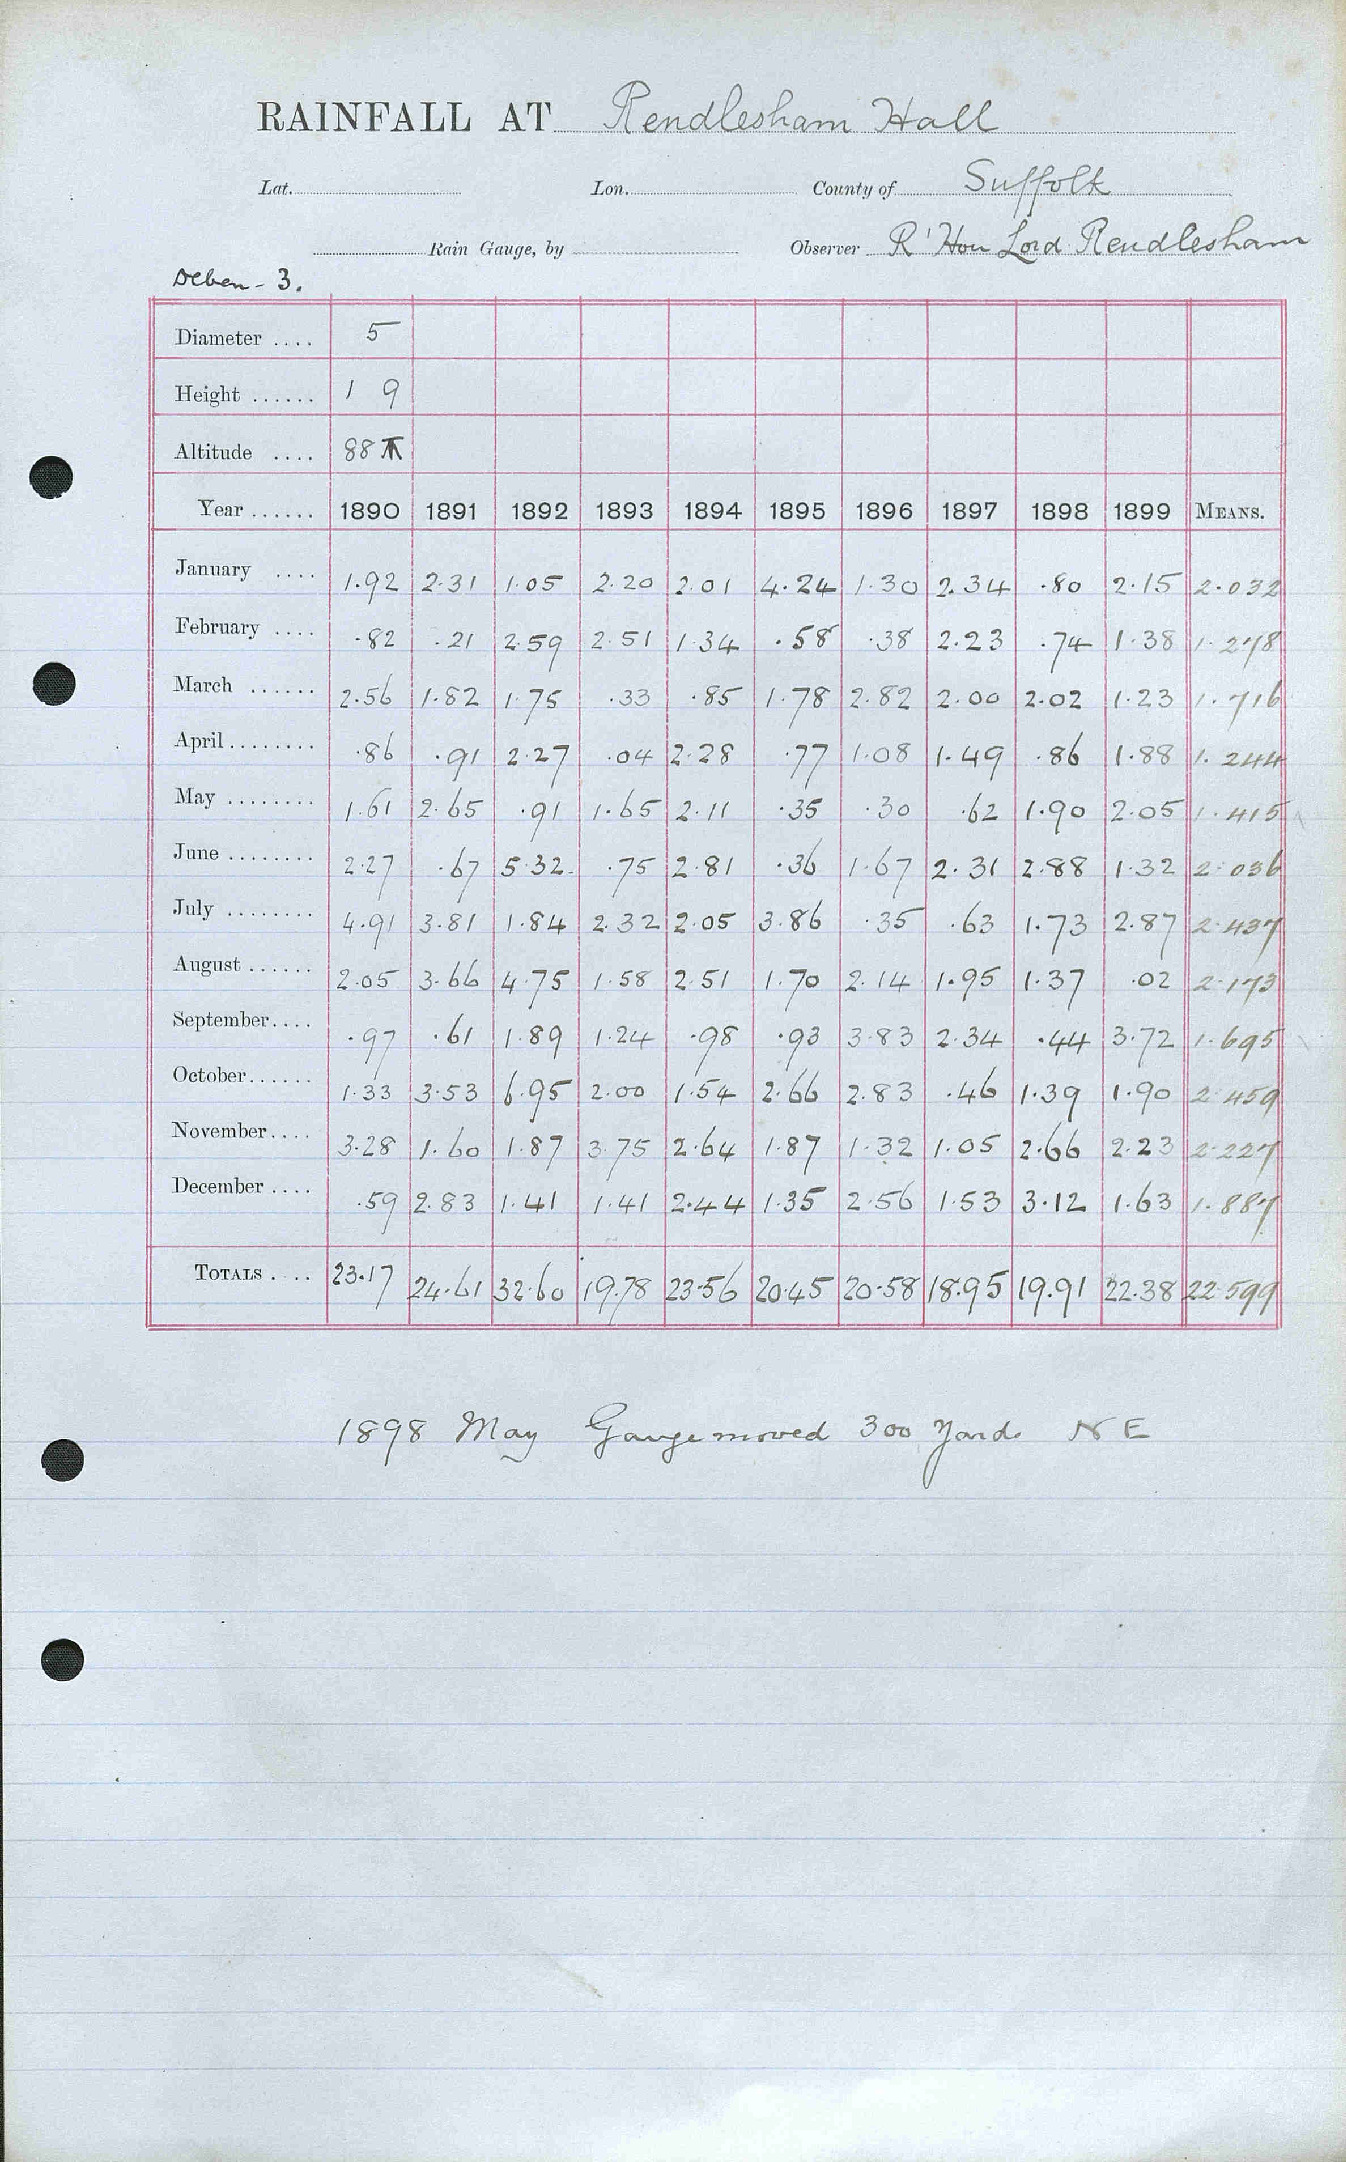 RAINFALL AT Rendlesham Hall
Lat. Lon. County of Suffolk
Rain Gauge, by Observer Rt Hon Lord Rendlesham
Deben - 3.
Diameter .... 5
Height ...... 1 9
Altitude .... 88
Year ...... 1890 1891 1892 1893 1894 1895 1896 1897 1898 1899 MEANS.
January .... 1.92 2.31 1.05 2.20 2.01 4.24 1.30 2.34 .80 2.15 2.032
February .... .82 .21 2.59 2.51 1.34 .58 .38 2.23 .74 1.38 1.278
March ...... 2.56 1.82 1.75 .33 .85 1.78 2.82 2.00 2.02 1.23 1.716
April ........ .86 .91 2.27 .04 2.28 .77 1.08 1.49 .86 1.88 1.244
May ........ 1.61 2.65 .91 1.65 2.11 .35 .30 .62 1.90 2.05 1.415
June ........ 2.27 .67 5.32 .75 2.81 .36 1.67 2.31 2.88 1.32 2.036
July ........ 4.91 3.81 1.84 2.32 2.05 3.86 .35 .63 1.73 2.87 2.437
August ...... 2.05 3.66 4.75 1.58 2.51 1.70 2.14 1.95 1.37 .02 2.173
September.... .97 .61 1.89 1.24 .98 .93 3.83 2.34 .44 3.72 1.695
October...... 1.33 3.53 6.95 2.00 1.54 2.66 2.83 .46 1.39 1.90 2.459
November.... 3.28 1.60 1.87 3.75 2.64 1.87 1.32 1.05 2.66 2.23 2.227
December .... .59 2.83 1.41 1.41 2.44 1.35 2.56 1.53 3.12 1.63 1.887
TOTALS .... 23.17 24.61 32.60 19.78 23.56 20.45 20.58 18.95 19.91 22.38 22.599
1898 May Gauge moved 300 Yards NE